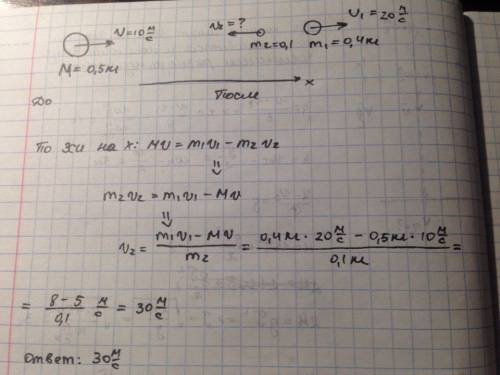 υ=10 м/с υ₂ = ? υ₁ = 20 м/с
M = 0,5 кг m₂=0,1 m₁ = 0,4 кг
x
До После
По ЗСИ на x: Mυ = m₁υ₁ − m₂υ₂
⇓
m₂υ₂ = m₁υ₁ − Mυ
⇓
υ₂ = (m₁υ₁ − Mυ)/m₂ = (0,4 кг · 20 м/с − 0,5 кг · 10 м/с)/0,1 кг =
= (8 − 5)/0,1 м/с = 30 м/с
Ответ: 30 м/с